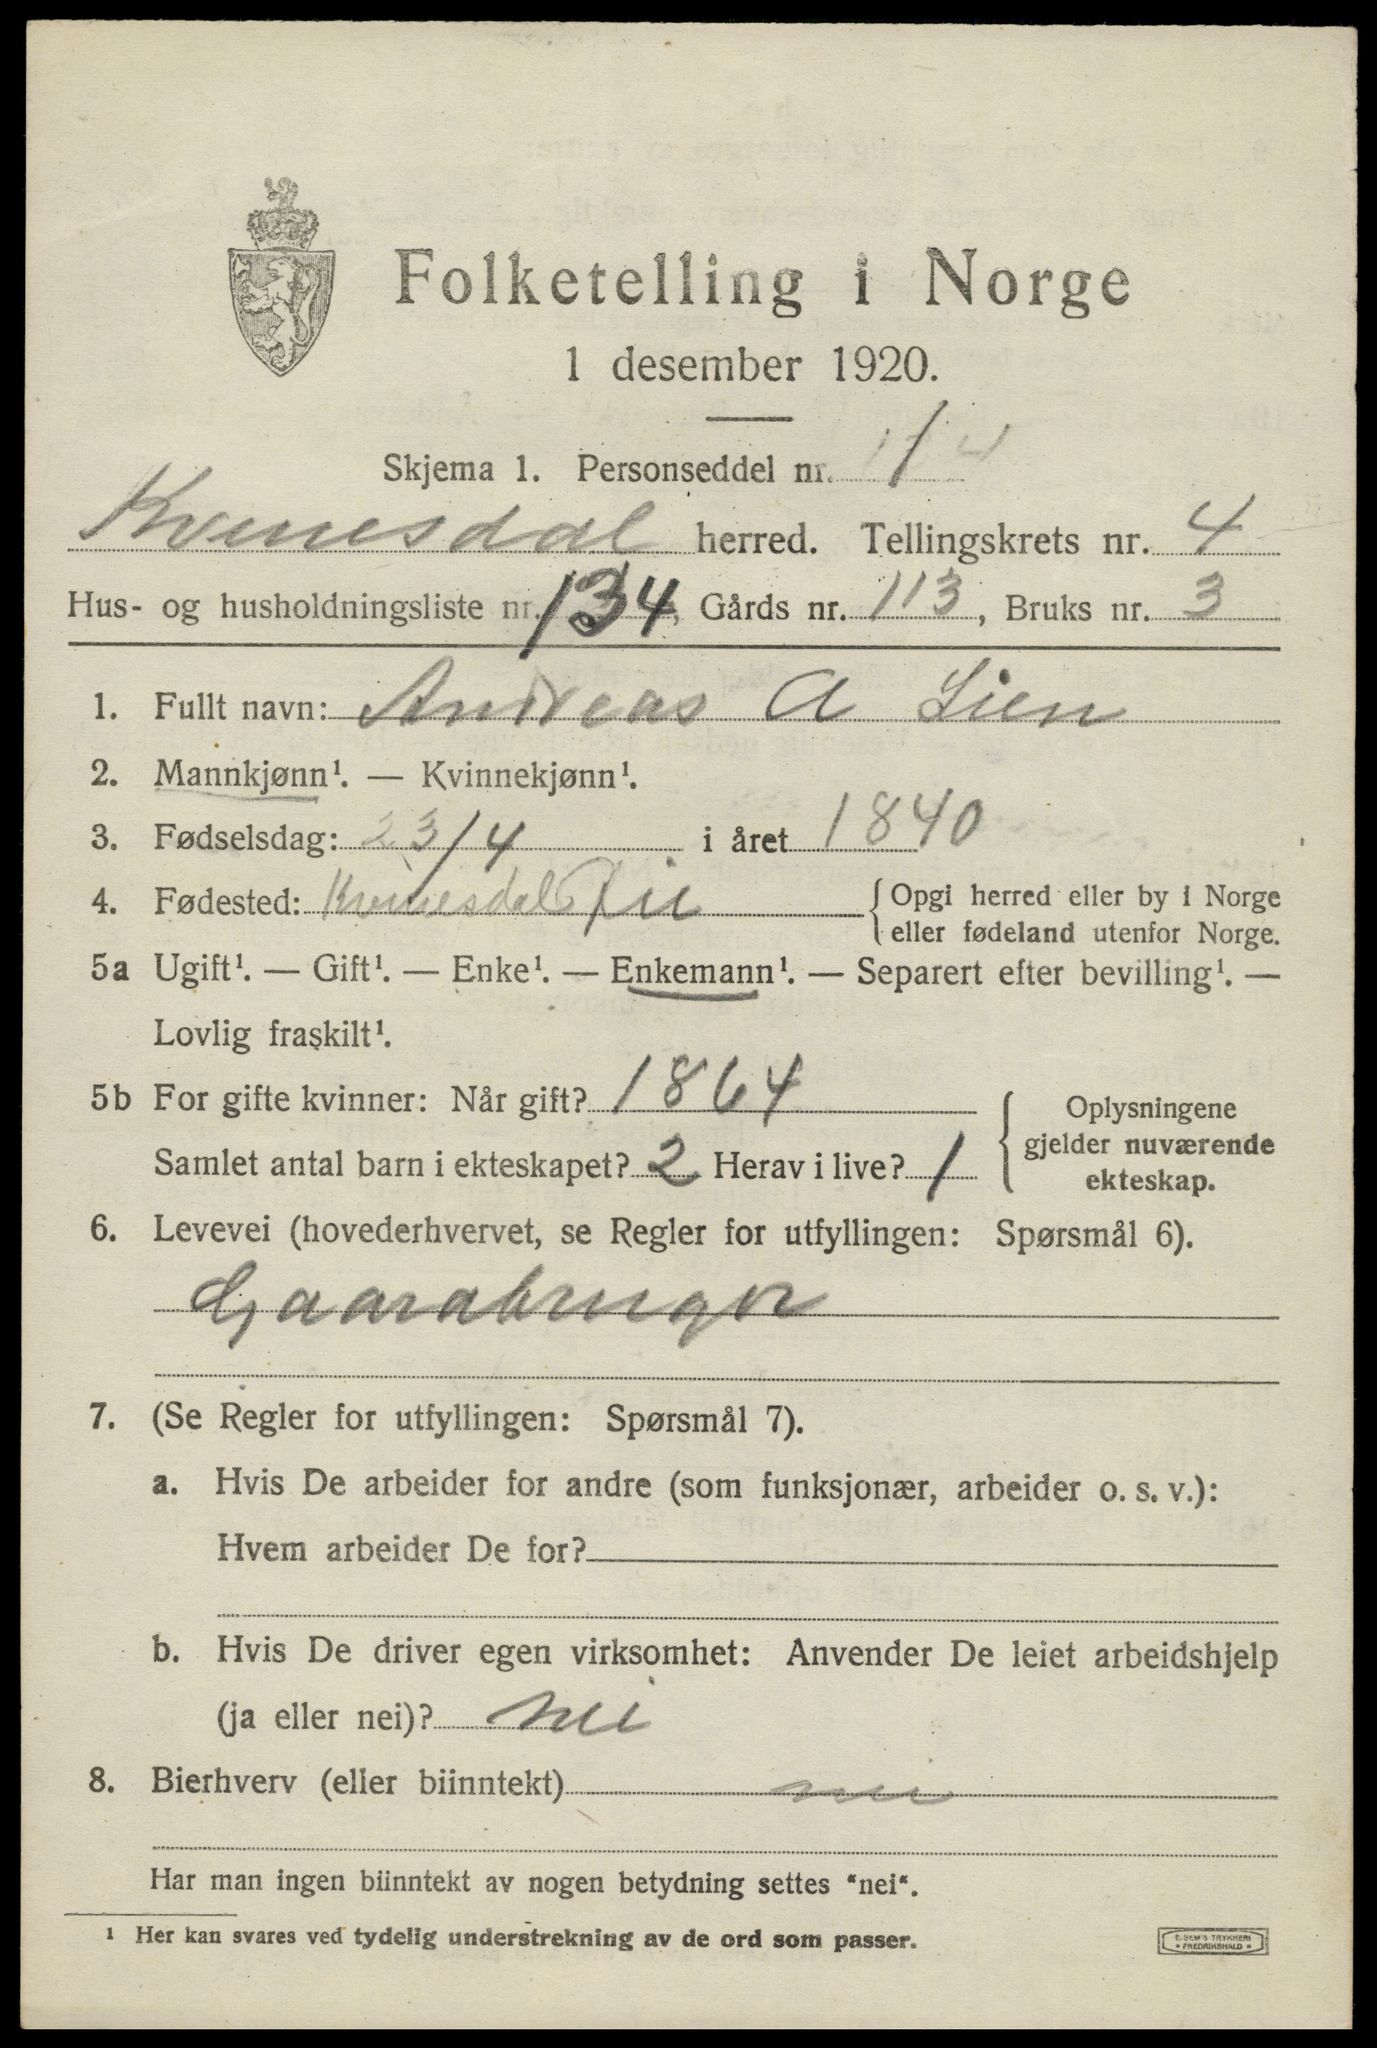 Folketelling i Norge
1 desember 1920.
Skjema 1. Personseddel nr. 1/4
Kvinesdal herred. Tellingskrets nr. 4
Hus- og husholdningsliste nr. 134, Gårds nr. 113, Bruks nr. 3
1. Fullt navn: Andreas A Lien
2. Mannkjønn¹. — Kvinnekjønn¹.
3. Fødselsdag: 23/4 i året 1840
4. Fødested: Kvinesdal { Opgi herred eller by i Norge
eller fødeland utenfor Norge.
5a Ugift¹. — Gift¹. — Enke¹. — Enkemann¹. — Separert efter bevilling¹. —
Lovlig fraskilt¹.
5b For gifte kvinner: Når gift? 1864
Samlet antal barn i ekteskapet? 2 Herav i live? 1
{ Oplysningene
gjelder nuværende
ekteskap.
6. Levevei (hovederhvervet, se Regler for utfyllingen: Spørsmål 6).
Gaardbruger
7. (Se Regler for utfyllingen: Spørsmål 7).
a. Hvis De arbeider for andre (som funksjonær, arbeider o. s. v.):
Hvem arbeider De for?
b. Hvis De driver egen virksomhet: Anvender De leiet arbeidshjelp
(ja eller nei)? nei
8. Bierhverv (eller biinntekt) nei
Har man ingen biinntekt av nogen betydning settes "nei".
¹ Her kan svares ved tydelig understrekning av de ord som passer.
E. SEM'S TRYKKERI
• FREDRIKSHALD •